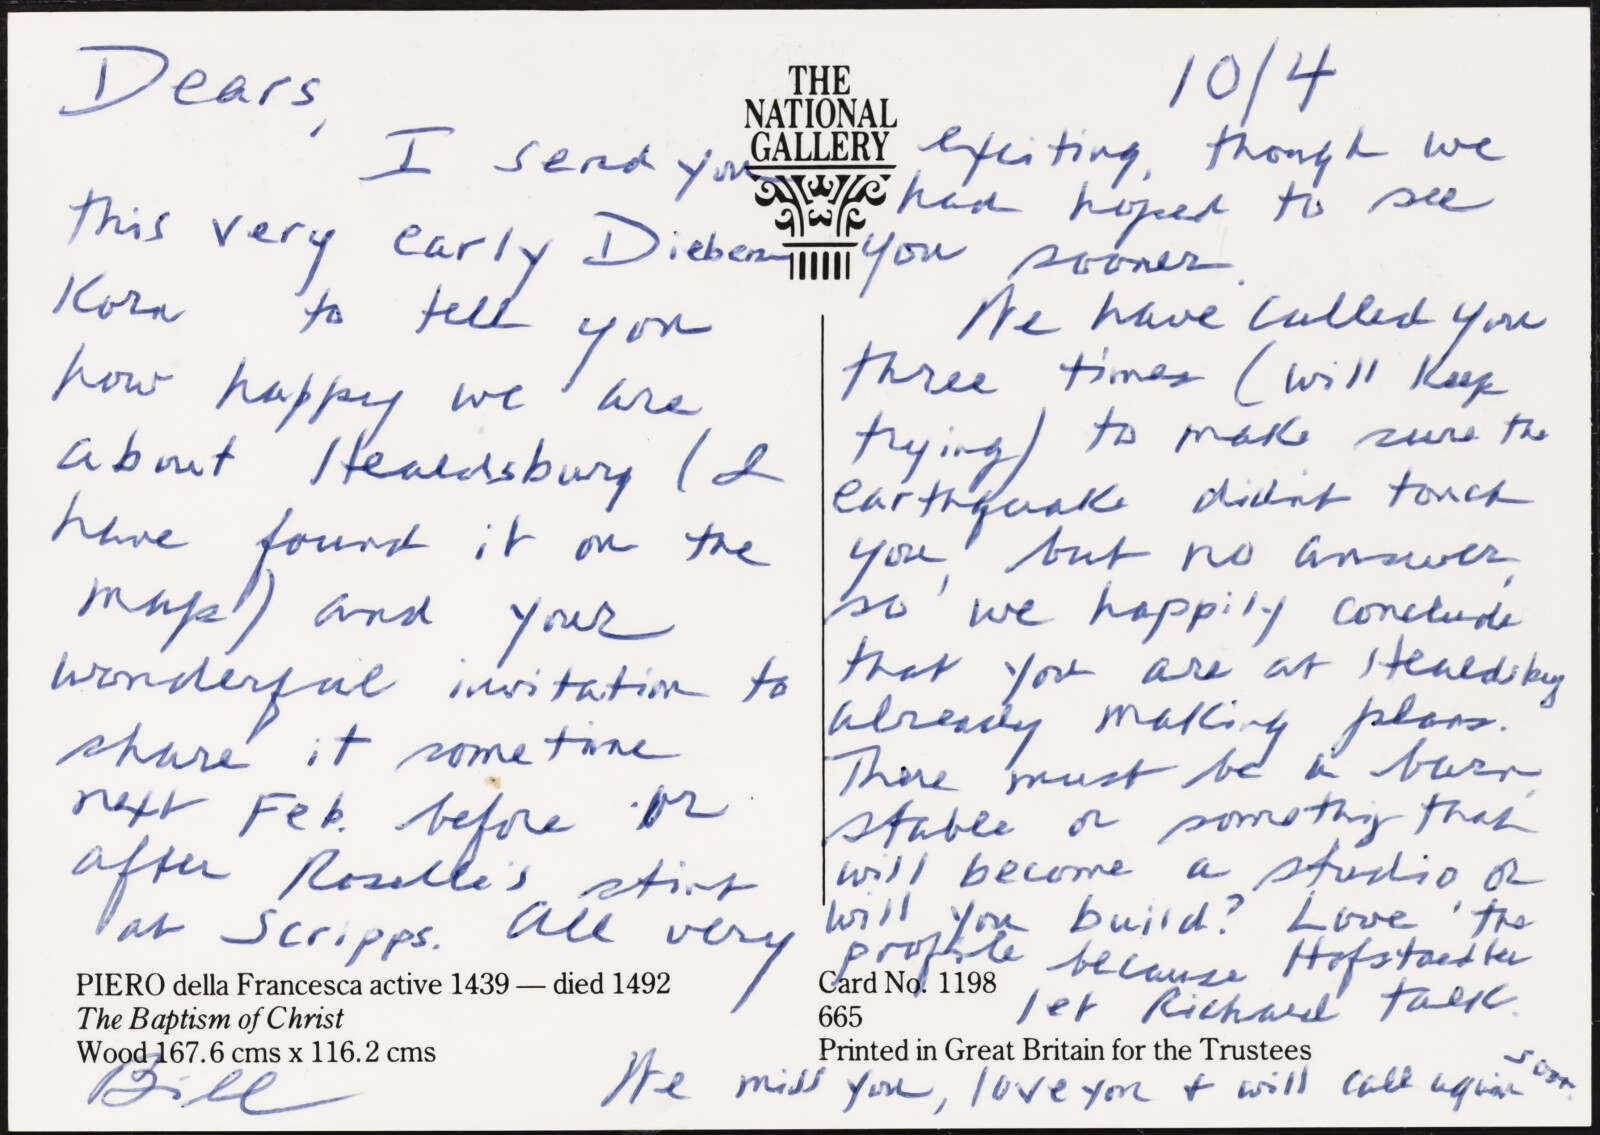 Dears,
I send you
this very early Dieben
Korn to tell you
how happy we are
about Healdsburg (I
have found it on the
maps) and your
wonderful invitation to
share it sometime
next Feb. before or
after Roselle's stint
at Scripps. All very
THE
NATIONAL
GALLERY
10/4
exciting, though we
had hoped to see
you sooner.
We have called you
three times (will keep
trying) to make sure the
earthquake didnt touch
you, but no answer,
so we happily conclude
that you are at Healdsburg
already making plans.
There must be a barn,
stable or something that
will become a studio or
will you build? Love the
profile because Hofstaedter
let Richard talk.
We miss you, love you + will call again soon.
Bill
PIERO della Francesca active 1439 — died 1492
The Baptism of Christ
Wood 167.6 cms x 116.2 cms
Card No. 1198
665
Printed in Great Britain for the Trustees